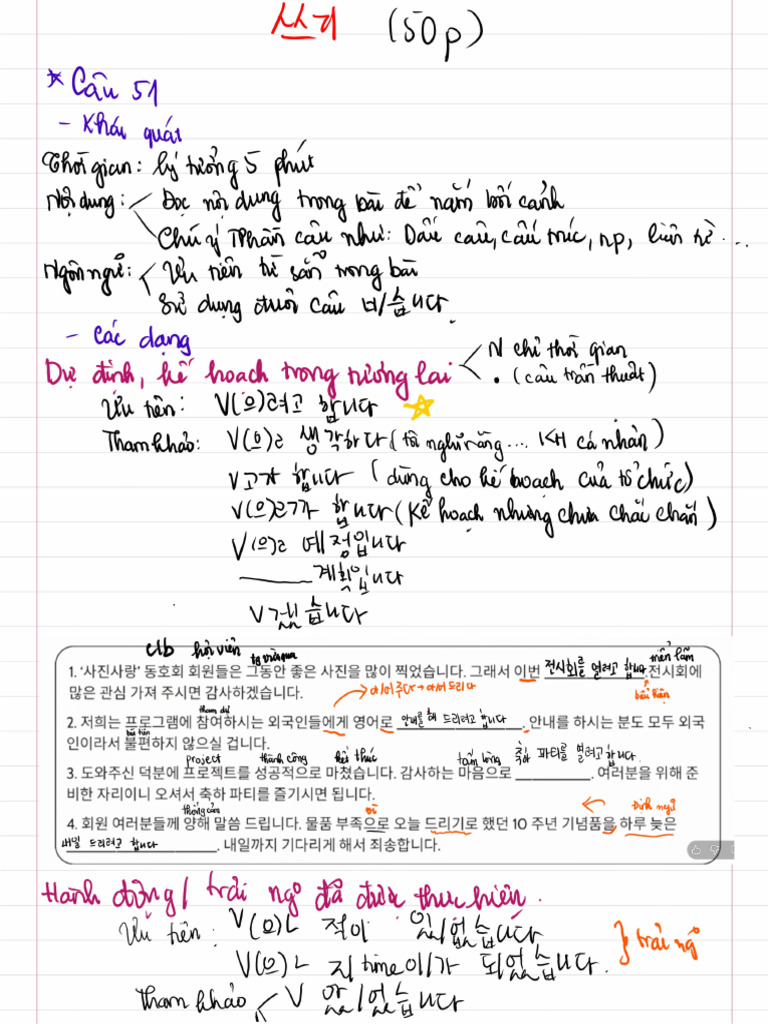 쓰기 (50p)
* Câu 51
- Khái quát
Thời gian: lý tưởng 5 phút
Nội dung: Đọc nội dung trong bài để nắm bối cảnh
Chú ý Thần câu như: Dấu câu, cấu trúc, np, liên từ...
Ngôn ngữ: Ưu tiên từ sẵn trong bài
Sử dụng đuôi câu ㅂ/습니다
- Các dạng
Dự định, kế hoạch trong tương lai N chỉ thời gian
. (câu trần thuật)
Ưu tiên: V(으)려고 합니다
Tham khảo: V(으)ㄹ 생각하다 (tôi nghĩ rằng... KH cá nhân)
V고자 합니다 (dùng cho kế hoạch của tổ chức)
V(으)ㄹ까 합니다 (Kế hoạch nhưng chưa chắc chắn)
V(으)ㄹ 예정입니다
계획입니다
V겠습니다
clb hội viên
1. ‘사진사랑’ 동호회 회원들은 그동안 좋은 사진을 많이 찍었습니다. 그래서 이번 전시회를 열려고 합니다. 전시회에 triển lãm
많은 관심 가져 주시면 감사하겠습니다. 아/어 주다 → 아/어 드리다
tham dự
2. 저희는 프로그램에 참여하시는 외국인들에게 영어로 안내를 해 드리려고 합니다. 안내를 하시는 분도 모두 외국
인이라서 불편하지 않으실 겁니다.
project thành công kết thúc tấm lòng 축하 파티를 열려고 합니다.
3. 도와주신 덕분에 프로젝트를 성공적으로 마쳤습니다. 감사하는 마음으로 ____________. 여러분을 위해 준
비한 자리이니 오셔서 축하 파티를 즐기시면 됩니다.
thông cảm định ngữ
4. 회원 여러분들께 양해 말씀 드립니다. 물품 부족으로 오늘 드리기로 했던 10 주년 기념품을 하루 늦은
내일 드리려고 합니다. 내일까지 기다리게 해서 죄송합니다.
Hành động/ trải ngộ đã được thực hiện.
Ưu tiên: V(으)ㄴ 적이 있/없습니다
V(으)ㄴ 지 time이/가 되었습니다. } trải ngộ
Tham khảo V 았/었습니다